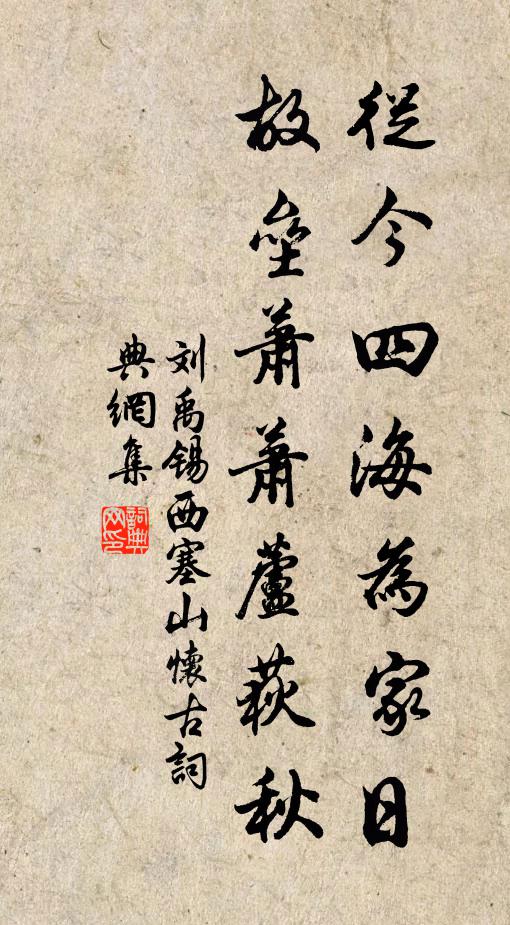 從今四海為家日
故壘蕭蕭蘆荻秋
刘禹锡西塞山懷古詞
典網集
詞典網印